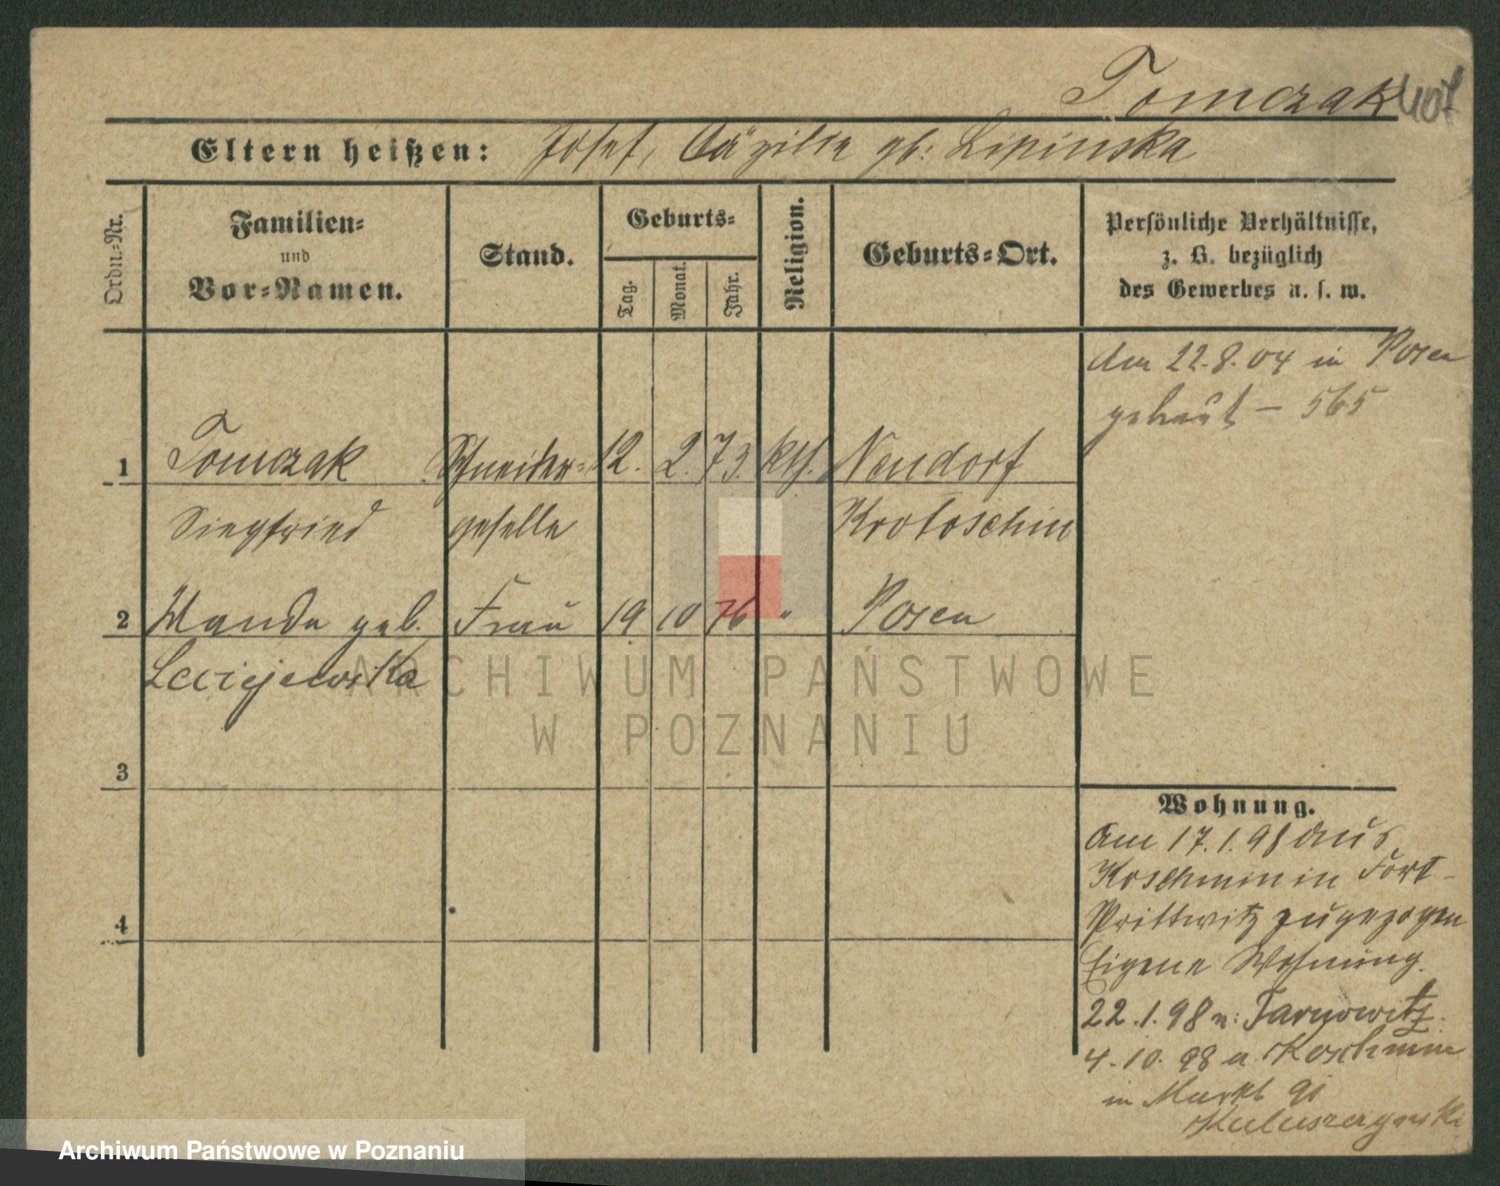 Tomczak 407
Eltern heißen: Josef, Cäzilie gb: Lipinska
Ordn.-Nr.
Familien-
und
Vor-Namen.
Stand.
Geburts-
Tag.
Monat.
Jahr.
Religion.
Geburts-Ort.
Persönliche Verhältnisse,
z. B. bezüglich
des Gewerbes u. s. w.
Am 22.8.04 in Posen
getraut - 565
1 Tomczak Schneider- 12. 2. 73. kth. Neudorf
Siegfried geselle Krotoschin
2 Wanda geb. Frau 19 10 76 " Posen
3
4
Wohnung.
Am 17.1.98 aus
Koschmin in Fort-
Prittwitz zugezogen
Eigene Wohnung.
22.1.98 n: Tarnowitz.
4.10.98 a Koschmin
in Markt 91
ARCHIWUM PAŃSTWOWE
W POZNANIU
Archiwum Państwowe w Poznaniu